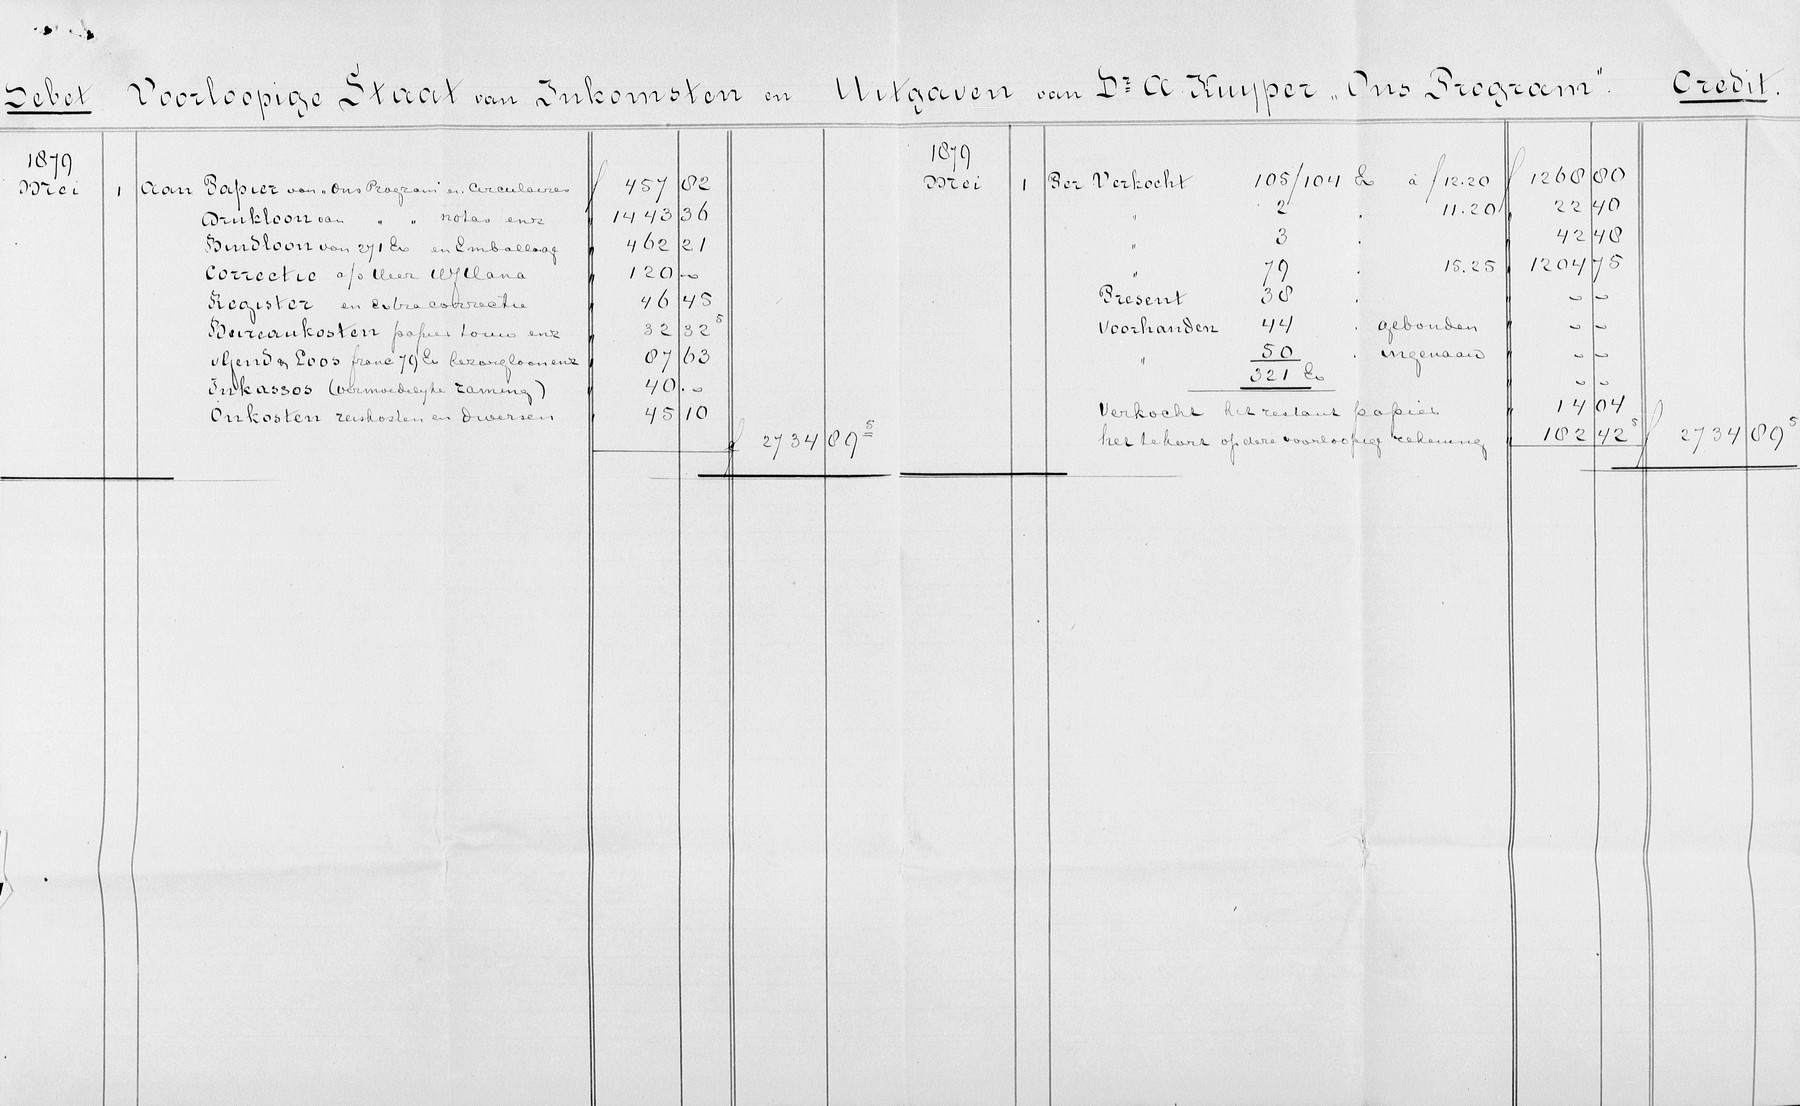 Debet Voorloopige Staat van Inkomsten en Uitgaven van Dr. A Kuyper „Ons Program". Credit.
1879
Mei 1 Aan Papier van „Ons Program" en Circulaires f 457 82
Drukloon van „ „ notas enz „ 1443 36
Bindloon van 271 Ex en Emballage „ 462 21
Correctie a/o Heer „ 120 –
Register en extra correctie „ 46 45
Bureaukosten papier touw enz „ 32 32⁵
v Gend & Loos franc 79 Ex bezorgloon enz „ 87 63
Inkassos (vermoedelyke raming) „ 40 . –
Onkosten reiskosten en diversen „ 45 10
f 2734 89⁵
1879
Mei 1 Per Verkocht 105/104 Ex à f 12.20 f 1268 80
„ 2 . 11.20 „ 22 40
„ 3 . „ 42 48
„ 79 . 15.25 „ 1204 75
Present 38 . „ – –
Voorhanden 44 . gebonden „ – –
„ 50 . ingenaaid „ – –
321 Ex – –
Verkocht het restant papier „ 14 04
het tekort op deze voorloopige rekening „ 182 42⁵ f 2734 89⁵